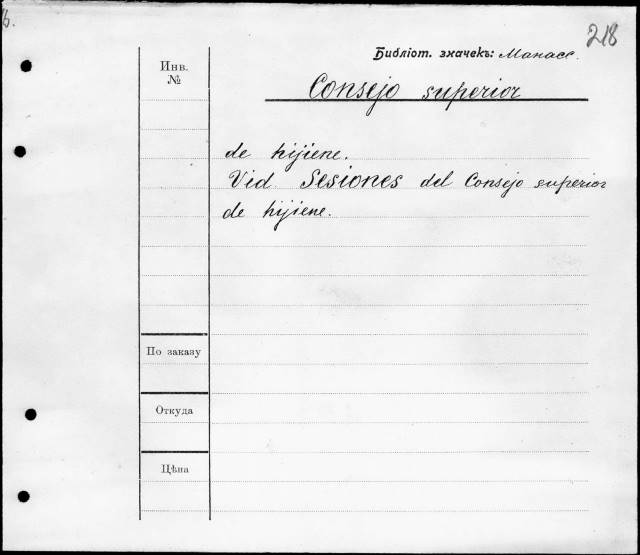 б.
218
Библіот. значекъ: Манасс.
Инв.
№
Consejo superior
de hijiene.
Vid. Sesiones del Consejo superior
de hijiene.
По заказу
Откуда
Цѣна